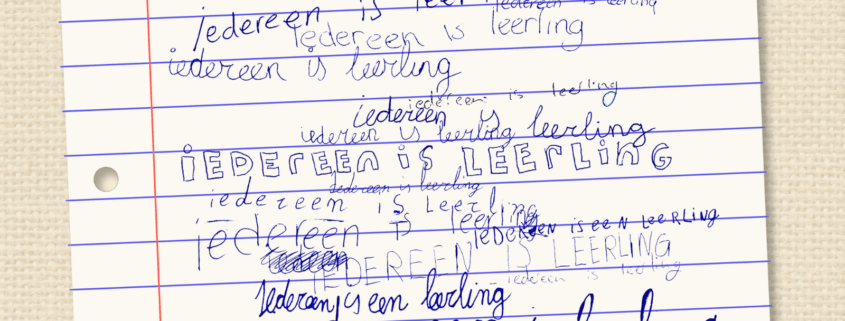 iedereen is leer
iedereen is leerling
Iedereen is leerling
iedereen is leerling
iedereen is leerling
iedereen is leerling
iedereen is leerling
iEDEREEN iS LEERLiNG
Iedereen is leerling
iedereen is Leerling
iedereen is leerling
IEDEREEN IS EEN LEERLING
IEDEREEN IS LEERLING
iedereen is leerling
Iedereen is een leerling